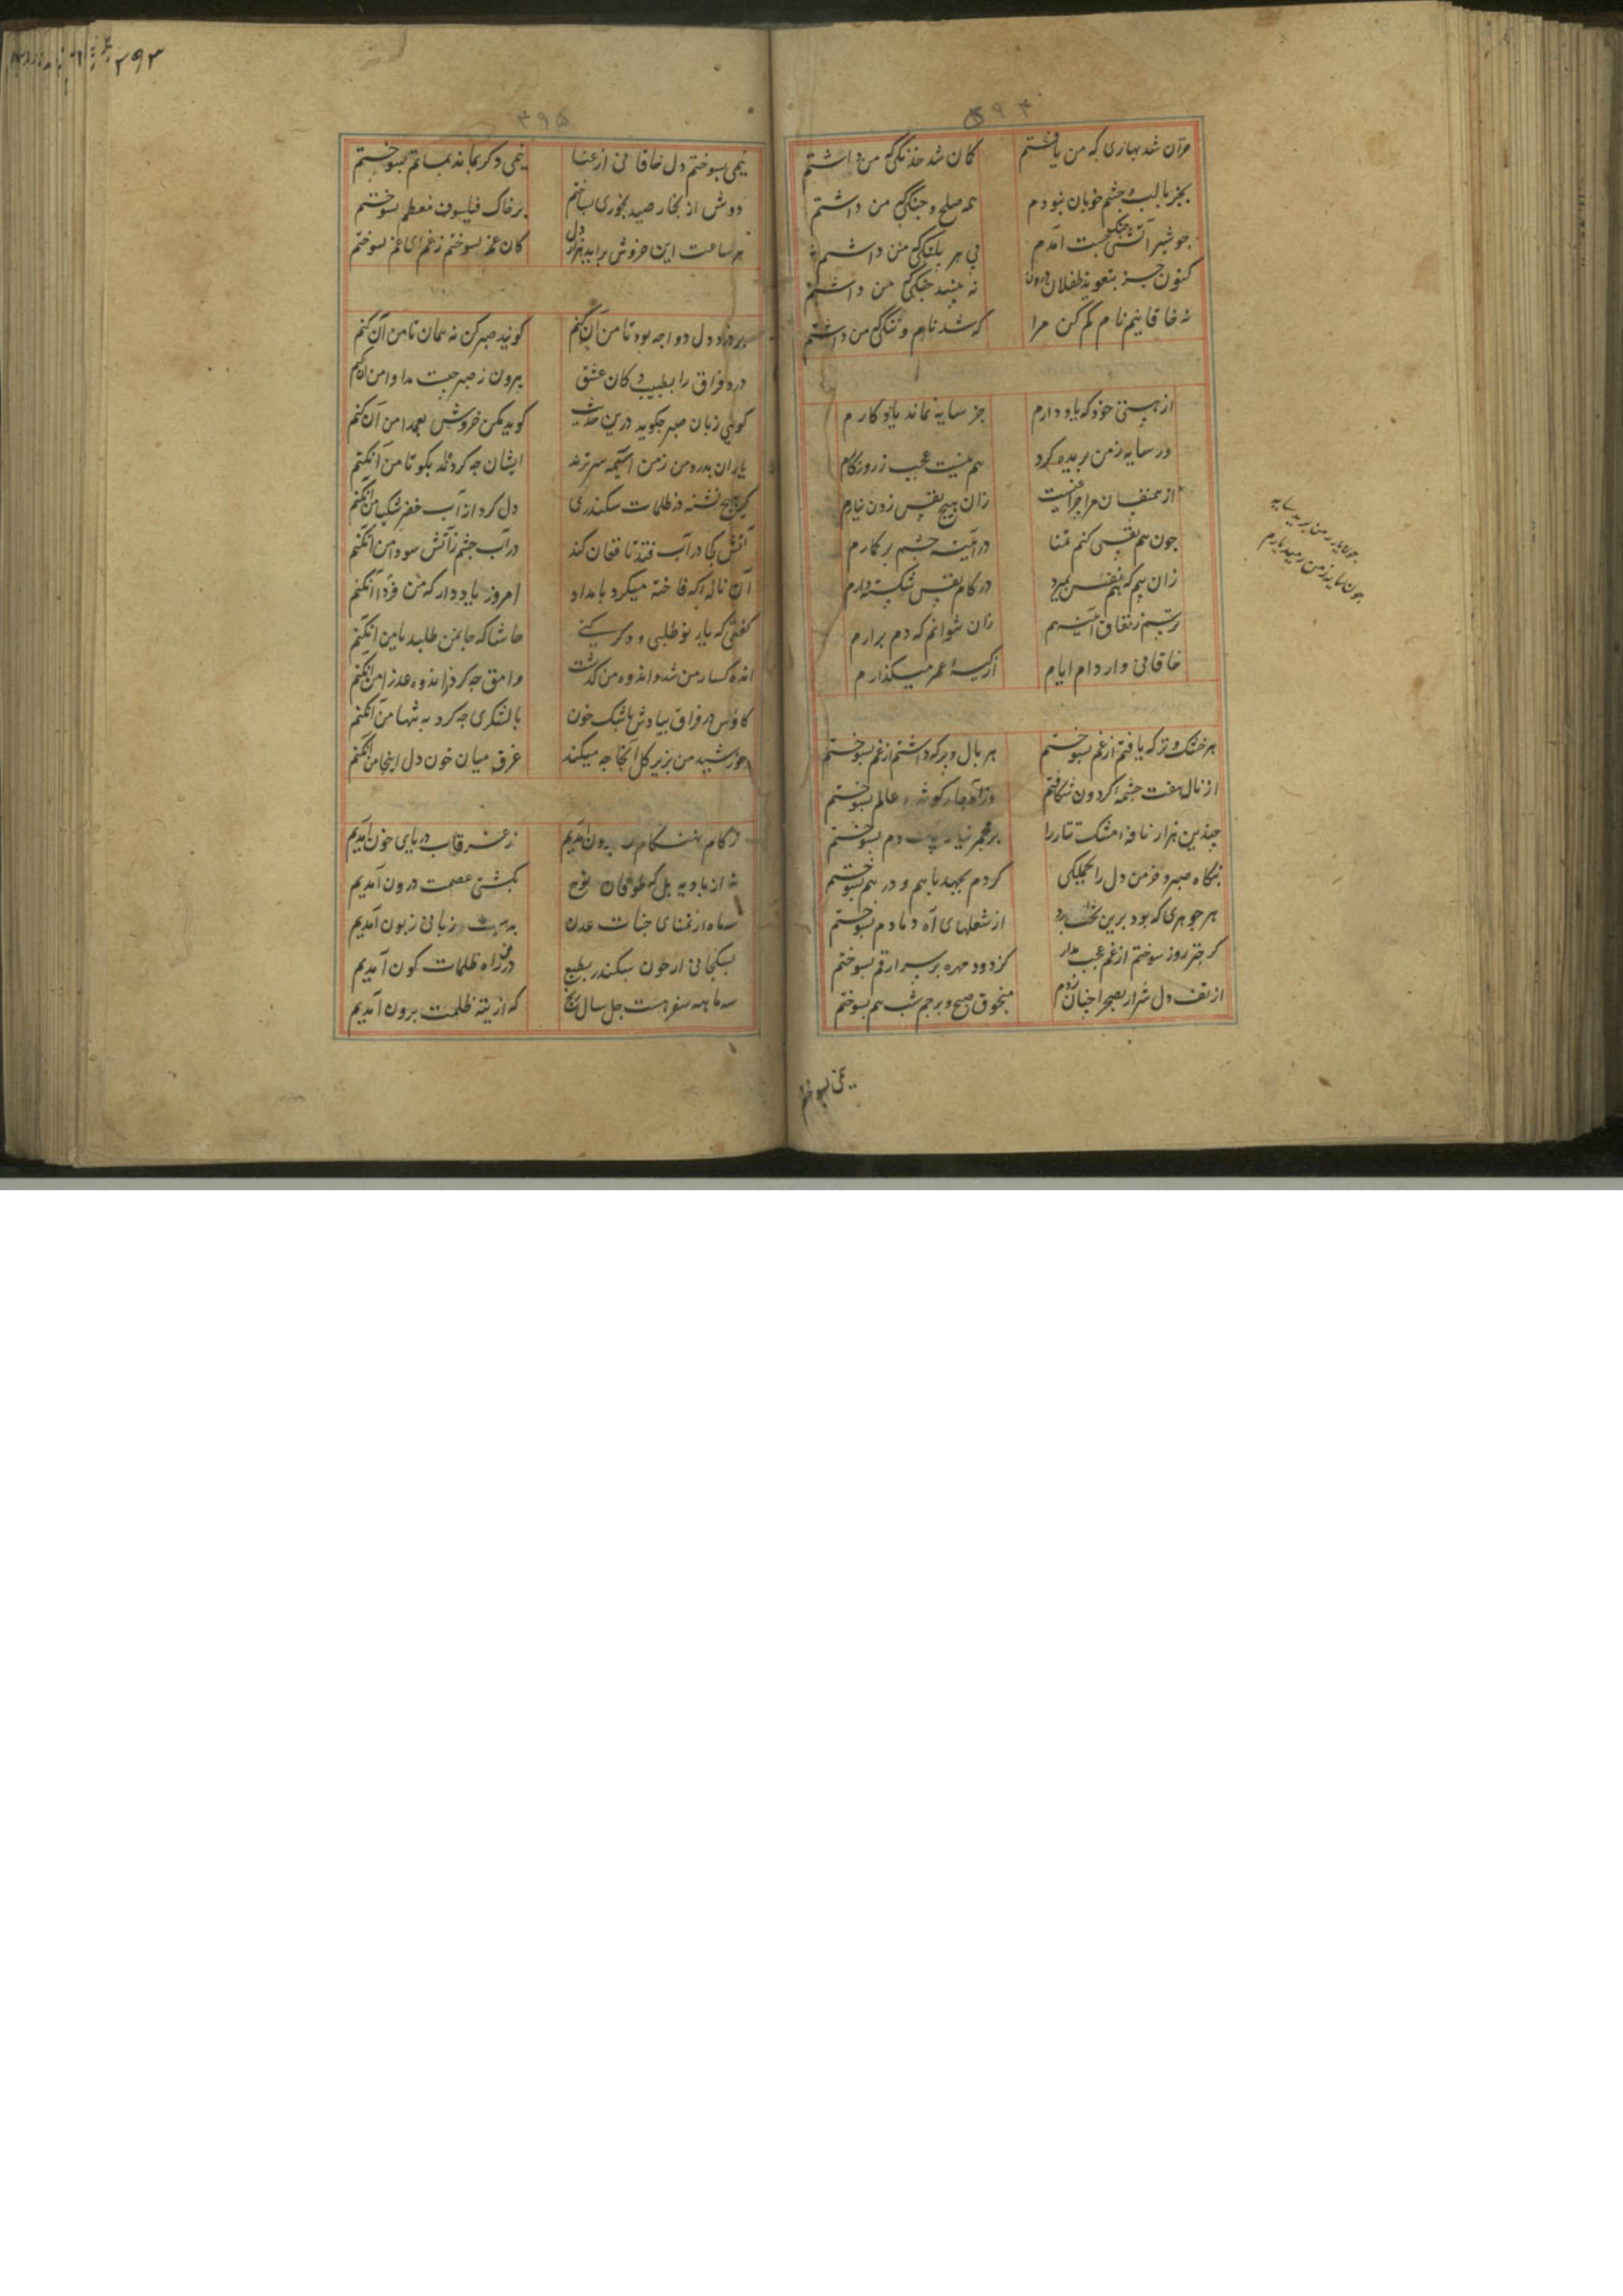 ۵۹۴
خزان شد بهاری که من یافتم کمان شد خدنگی که من داشتم
بجز با لب و چشم خوبان نبودم همه صلح و جنگی که من داشتم
چو شیر آتشین چنگ و چست آمدم پی هر پلنگی که من داشتم
کنون جز بتعویذ طفلان درون نه بینند چنگی که من داشتم
نه خاقانیم نام کم کن مرا که شد نام و ننگی که من داشتم
از هستی خود که یاد دارم جز سایه نماند یادکارم
ور سایه زمن بریده کردد هم نیست عجب ز روزکارم
از همنفسان مرا چراغیست زان هیچ نفس زدن نیارم
چون هم نفسی کنم تمنا در آینه چشم بر کمارم
زان بیم که هم نفس بمیرد در کام نفس شکسته دارم
ترسم ز نفاق آینه هم زان نتوانم که دم برارم
خاقانی وار دام ایام از کیسه عمر میکذارم
چون یار زمن برید سایه
چون سایه زمن رمید یارم
هر خشک و تر که یافتم از غم بسوختم هر بال و پر که داشتم از غم بسوختم
از نال هفت چشمه کردون شکافتم وز آه چار کوشه عالم بسوختم
چندین هزار نافه مشک تتار را بر مجمر نیاز دم بسوختم
بنکاه صبر و خرمن دل را بجملکی کردم بجهد با هم و در هم بسوختم
هر جوهری که بود برین تخت از شعلهای آه دمادم بسوختم
کر چتر روز سوختم از غم عجب مدار کز دود مهره بر سر ارقم بسوختم
از تف دل شرار بصحرا چنان زدم منجوق صبح و پرچم شب هم بسوختم
نیمی بسوختم
۲۹۳
۳۹۵
نیمی بسوختم دل خاقانی از عنا نیمی دکر بماند بماتم بسوختم
دوش از بخار صید بخوری بساختم بر خاک فیلسوف معظم بسوختم
هر ساعت این خروش براید هزار دل کان عم بسوختم ز غم ای عم بسوختم
درد دل دوا چه بود تا من آن کنم کویند صبر کن نه همان تا من آن کنم
درد فراق را بطبیب دکان عشق بیرون ز صبر چیست مداوا من آن کنم
کوئی زبان صبر چکوید درین حدیث کوید مکن خروش بعمدا من آن کنم
یاران بدرد من زمن آسیمه سر ترند ایشان چه کرده اند بکو تا من آنکنم
کر هیچ تشنه در ظلمات سکندری دل کرد از آب خضر شکیبا من آنکنم
آتش کجا در آب فتد تا فغان کند در آب چشم ز آتش سودا من آنکنم
آن ناله که فاخته میکرد بامداد امروز یاد دار که من فردا آنکنم
کفتی که یار نو طلبی و دکر کنی حاشا که جانم طلبد یا من آنکنم
انده کسار من شد و اندوه من کذشت وامق چه کرد ز اندوه عذرا من آنکنم
کاوس در فراق سیاوش باشک خون با لشکری چه کرد به تنها من آنکنم
خورشید من بزیر کل آنجا چه میکند غرق میان خون دل اینجا من آنکنم
ز کام نهنکان برون آمدیم ز غرقاب دریای خون آمدیم
نه از بادیه بل که طوفان نوح بکشتی عصمت درون آمدیم
سه ماه از تمنای جنات عدن زبانی زبون آمدیم
سکندر بطبع در راه ظلمات کون آمدیم
سه ماهه سفر هست چل سال رنج که از تیه ظلمت برون آمدیم